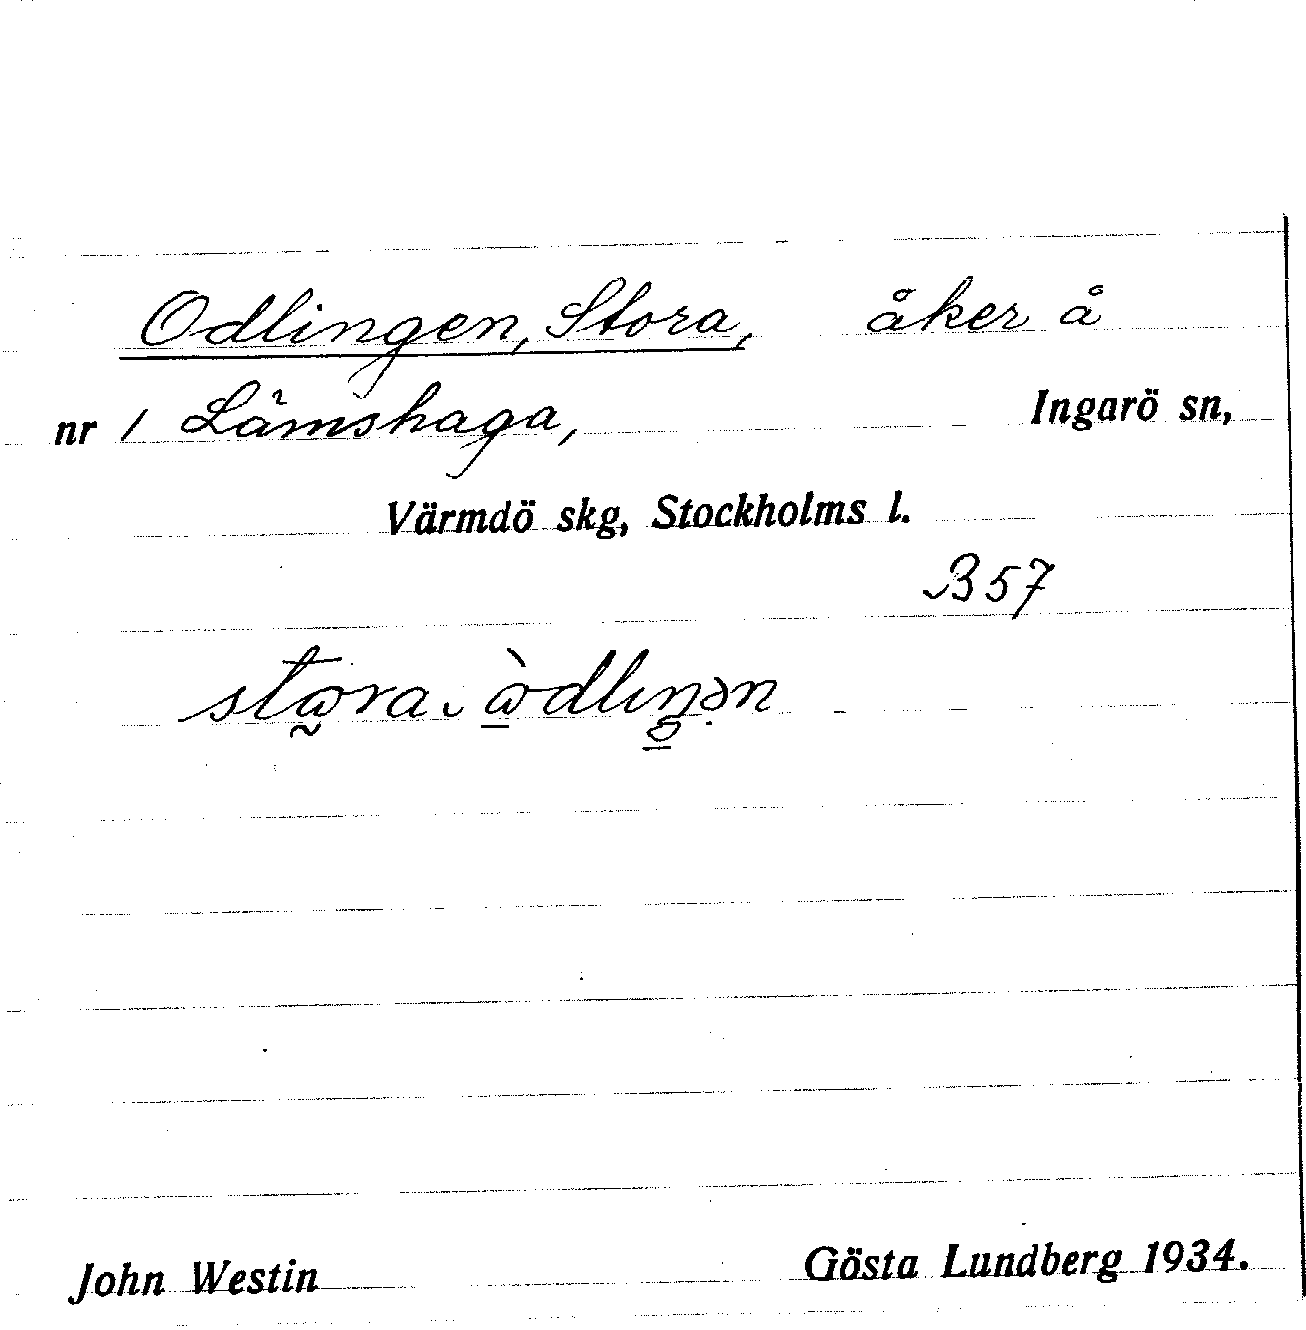 Odlingen, Stora, åker å
nr 1 Lämshaga, Ingarö sn,
Värmdö skg, Stockholms l.
B 57
stora
John Westin Gösta Lundberg 1934.